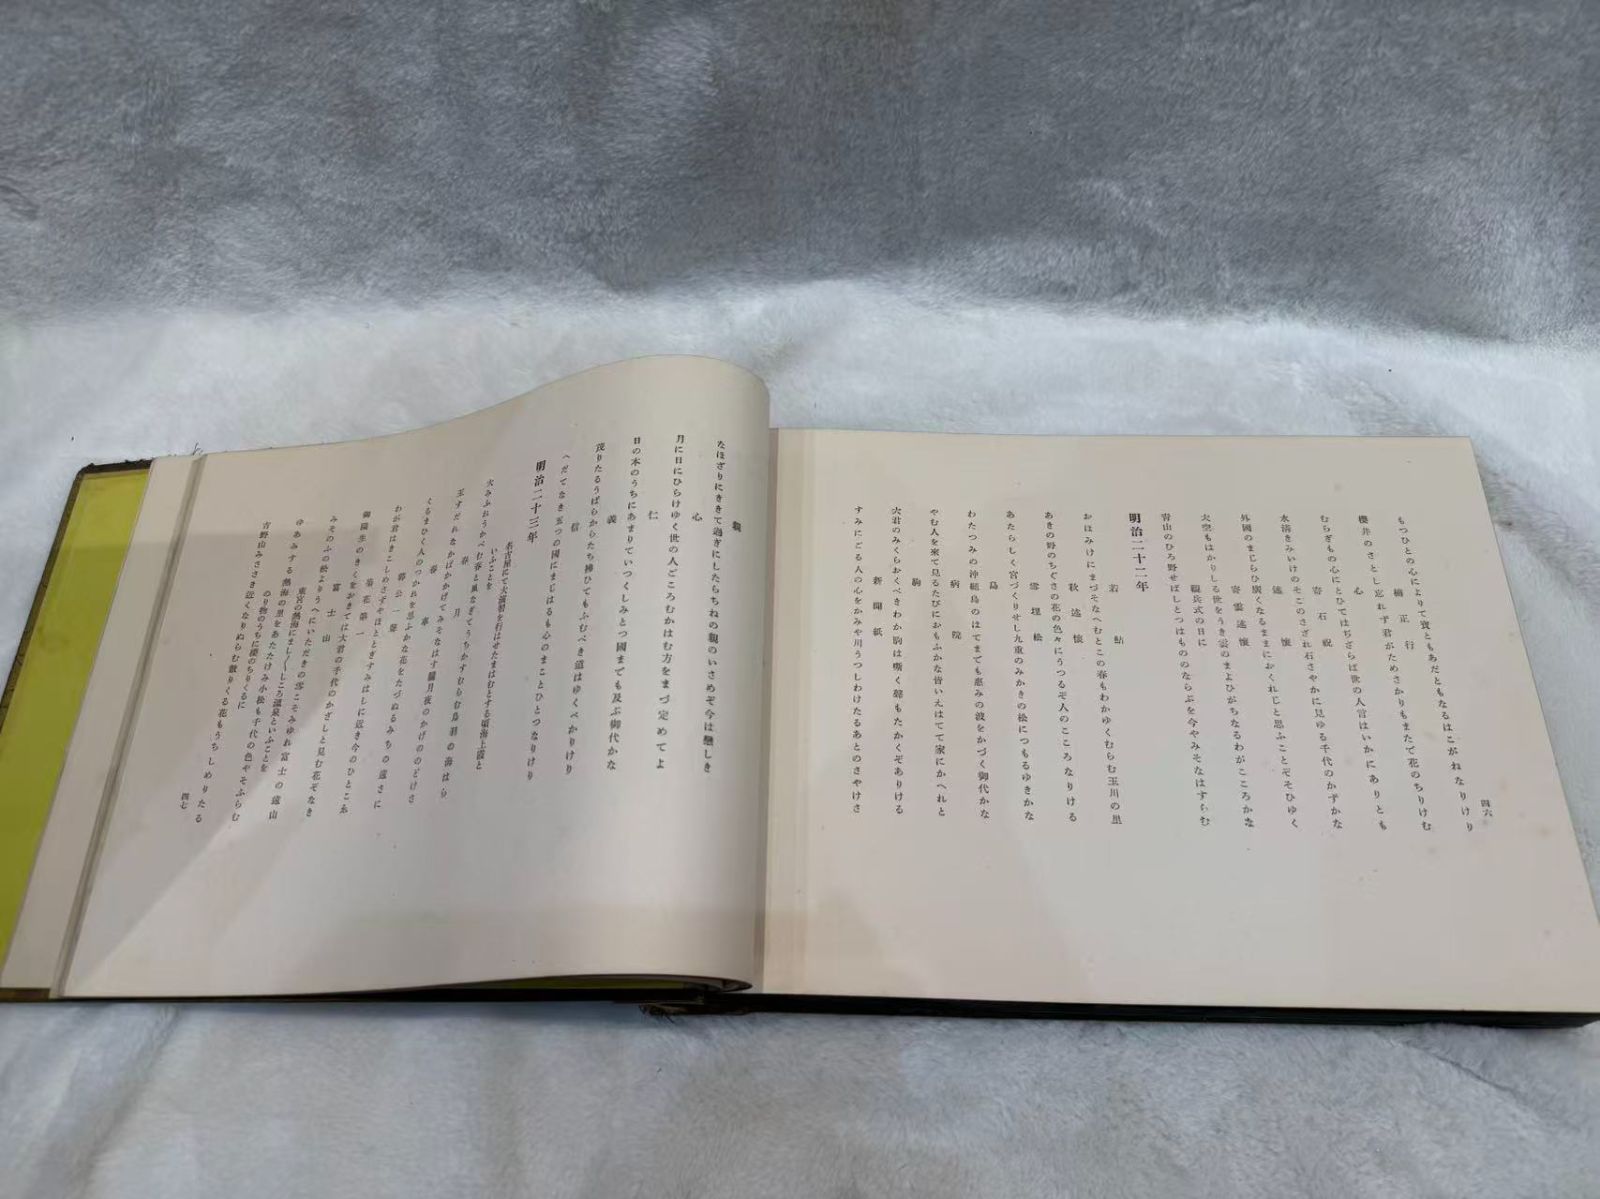 四六
もつひとの心によりて寳ともあだともなるはこがねなりけり
楠正行
櫻井のさとし忘れず君がためさかりもまたで花のちりけむ
心
むらぎもの心にとひてはぢざらば世の人言はいかにありとも
寄石祝
水淸きみいけのそこのさざれ石さやかに見ゆる千代のかずかな
述懷
外國のまじらひ廣くなるままにおくれじと思ふことぞそひゆく
寄雲述懷
大空もはかりしる世をうき雲のまよひがちなるわがこころかな
觀兵式の日に
靑山のひろ野せばしとつはもののならぶを今やみそなはすらむ
明治二十二年
若鮎
おほみけにまづそなへむとこの春もわかゆくむらむ玉川の里
秋述懷
あきの野のちぐさの花の色々にうつるぞ人のこころなりける
雪埋松
あたらしく宮づくりせし九重のみかきの松につもるゆきかな
島
わたつみの沖繩島のはてまでも惠みの波をかづく御代かな
病院
やむ人を來て見るたびにおもふかな皆いえはてて家にかへれと
駒
大君のみくらおくべきわか駒は嘶く聲もたかくぞありける
新聞紙
すみにごる人の心をかみや川うつしわけたるあとのさやけさ
親
なほざりにききて過ぎにしたらちねの親のいさめぞ今は戀しき
心
月に日にひらけゆく世の人ごころむかはむ方をまづ定めてよ
仁
日の本のうちにあまりていつくしみとつ國までも及ぶ御代かな
義
茂りたるうばらからたち拂ひてもふむべき道はゆくべかりけり
信
へだてなき五つの國にまじはるも心のまことひとつなりけり
明治二十三年
名古屋にて大演習を行はせたまはむとする頃海上霞と
いふことを
大みふねうかべむ春と風なぎてうちかすむらむ鳥羽の海はら
春月
玉すだれなかばかかげてみそなはす朧月夜のかげののどけさ
春車
くるまひく人のつかれを思ふかな花をたづぬるみちの遠さに
郭公一聲
わが君はきこしめさずやほととぎすみはしに近き今のひとこゑ
菊花第一
御園生のきくをおきては大君の千代のかざしと見む花ぞなき
富士山
みそのふの松よりうへにいただきの雪こそみゆれ富士の遠山
東宮の熱海にましましころ溫泉といふことを
ゆあみする熱海の里をあたたけみ小松も千代の色やそふらむ
のり物のうちに櫻のちりくるに
吉野山みささき近くなりぬらむ散りくる花もうちしめりたる
四七